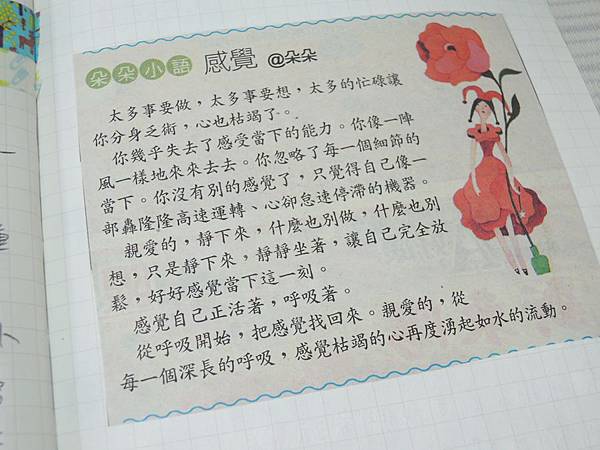 朵朵小語 感覺 @朵朵
太多事要做，太多事要想，太多的忙碌讓
你分身乏術，心也枯竭了。
你幾乎失去了感受當下的能力。你像一陣
風一樣地來來去去。你忽略了每一個細節的
當下。你沒有別的感覺了，只覺得自己像一
部轟隆隆高速運轉、心卻怠速停滯的機器。
親愛的，靜下來，什麼也別做，什麼也別
想，只是靜下來，靜靜坐著，讓自己完全放
鬆，好好感覺當下這一刻。
感覺自己正活著，呼吸著。
從呼吸開始，把感覺找回來。親愛的，從
每一個深長的呼吸，感覺枯竭的心再度湧起如水的流動。